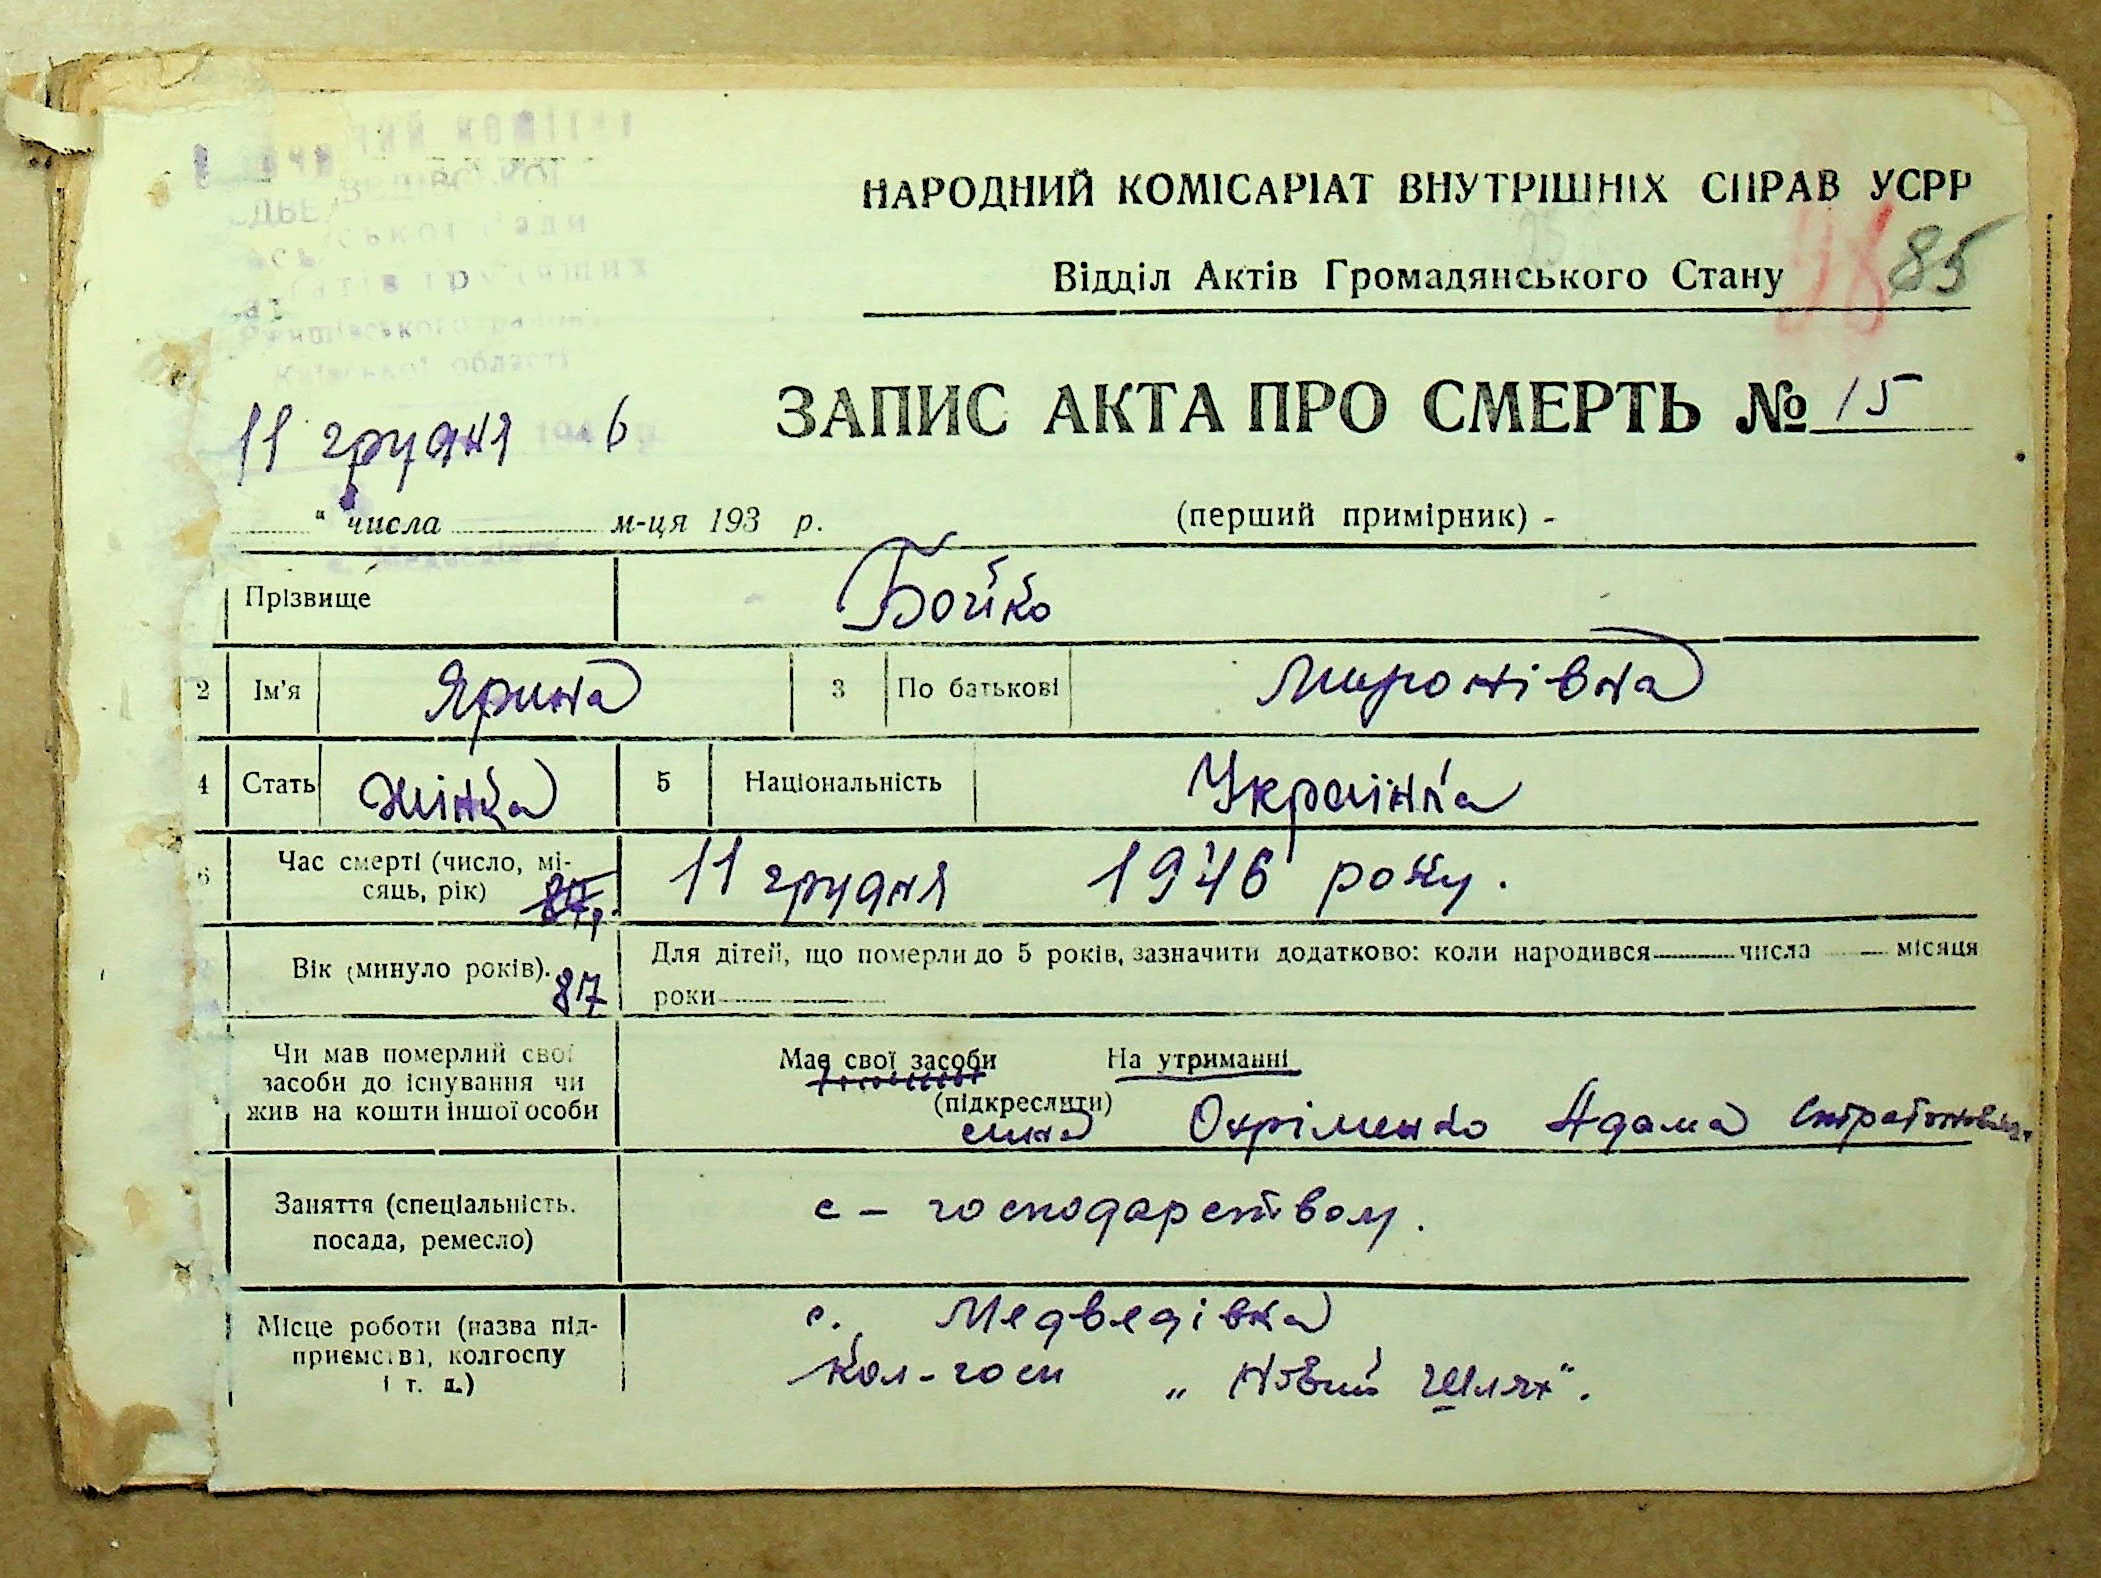 НАРОДНИЙ КОМІСАРІАТ ВНУТРІШНІХ СПРАВ УСРР
Відділ Актів Громадянського Стану
85
ЗАПИС АКТА ПРО СМЕРТЬ № 15
11 грудня 194 6 р.
" числа м-ця 193 р. (перший примірник) -
Прізвище Бойко
2 Ім'я Ярина 3 По батькові Миронівна
4 Стать Жінка 5 Національність Українка
6 Час смерті (число, мі-
сяць, рік) 87 11 грудня 1946 року.
Вік (минуло років). 87 Для дітей, що померли до 5 років, зазначити додатково: коли народився числа місяця
роки
Чи мав померлий свої
засоби до існування чи
жив на кошти іншої особи
Має свої засоби На утриманні
(підкреслити)
сина Охріменко Адама
Заняття (спеціальність.
посада, ремесло)
с – господарством.
Місце роботи (назва під-
приємства, колгоспу
і т. д.)
с. Медведівка
Кол-госп „ Новий шлях".